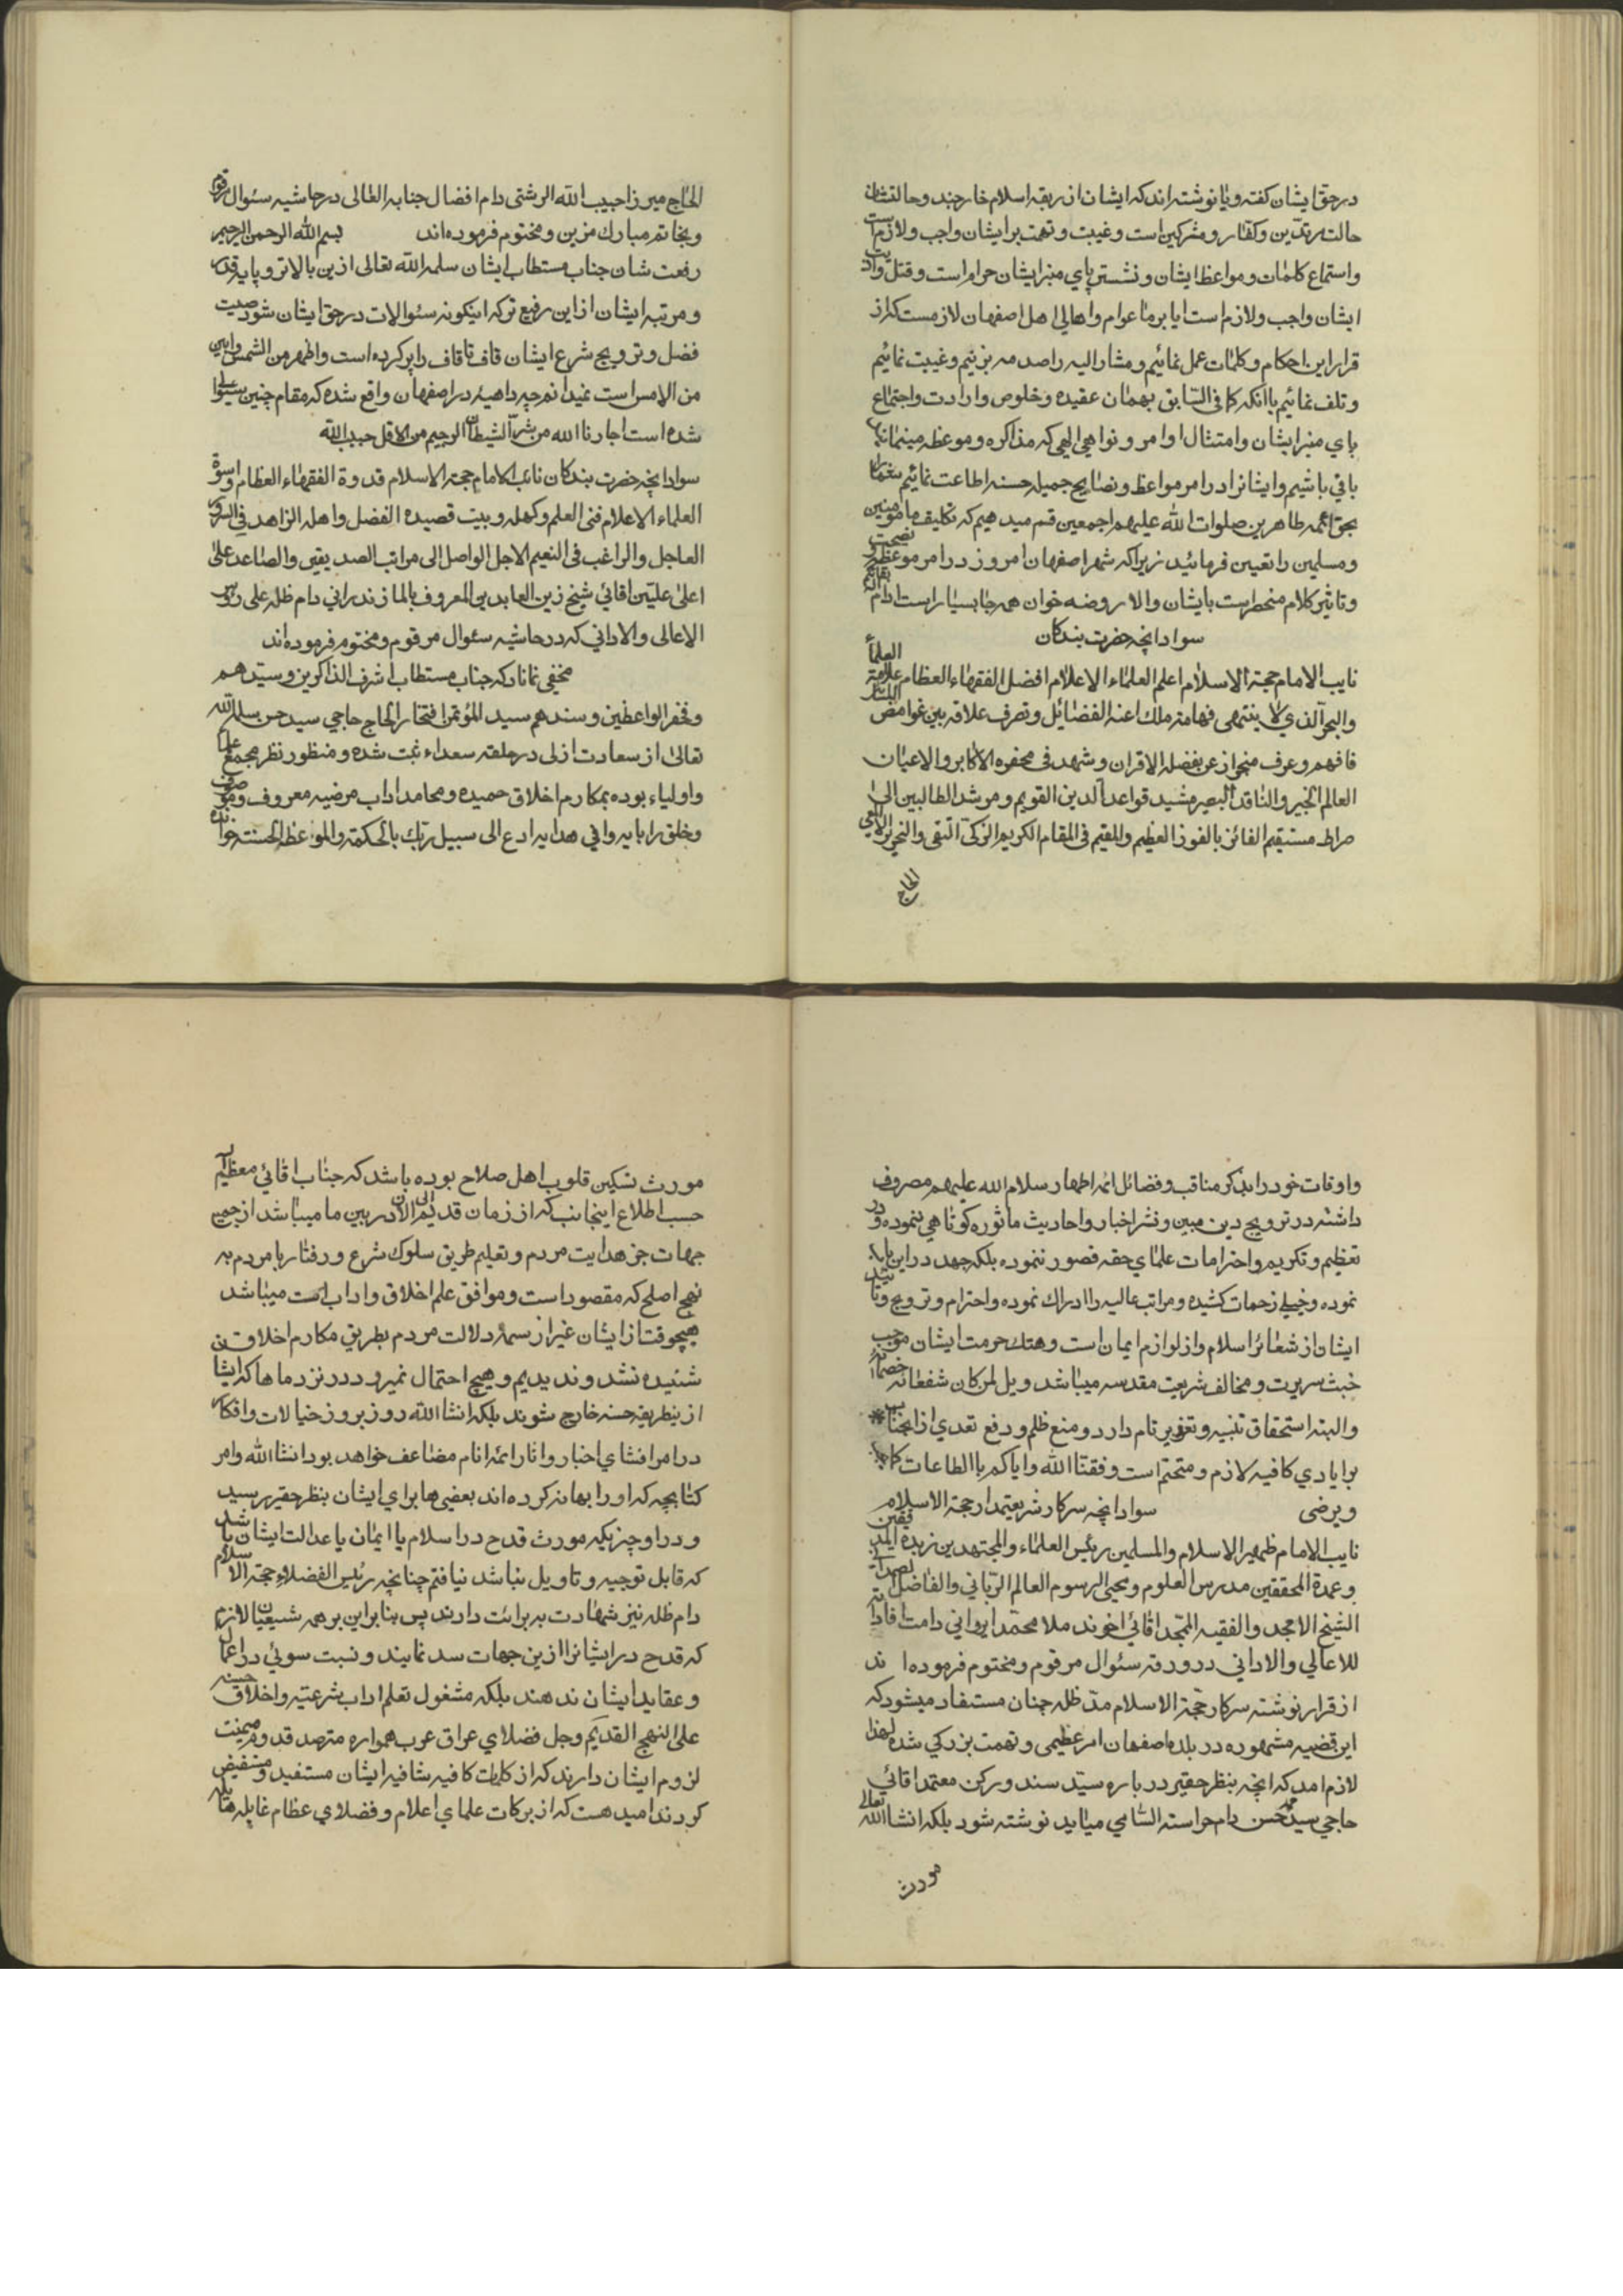 در حق ایشان کفته و یا نوشته اند که ایشان از ربقه اسلام خارجند و حالتشان
حالت مرتدین و کفار و مشرکین است و غیبت و تهمت بر ایشان واجب و لازم است
و استماع کلمات و مواعظ ایشان و نشستن پای منبر ایشان حرام است و قتل و اذیت
ایشان واجب و لازم است ایا بر ما عوام و اهالی اهل اصفهان لازمست که از
قرار این احکام و کلمات عمل نمائیم و مشار الیه را صدمه بزنیم و غیبت نمائیم
و تلف نمائیم یا انکه کما فی السابق بهمان عقیده و خلوص و ارادت و اجتماع
پای منبر ایشان و امتثال اوامر و نواهی الهی که مذاکره و موعظه مینمایند
باقی باشیم و ایشانرا در امر مواعظ و نصایح جمیله حسنه اطاعت نمائیم
بحق ائمه طاهرین صلوات الله علیهم اجمعین قسم میدهیم که تکلیف ما مومنین
و مسلمین را تعیین فرمائید زیرا که شهر اصفهان امروز در امر موعظه و نصیحت
و تاثیر کلام منحصر است بایشان والا روضه خوان همه جا بسیار است ادام
سواد انچه حضرت بندکان
نایب الامام حجة الاسلام اعلم العلماء الاعلام افضل الفقهاء العظام علامة العلماء
والبحر الذی لا ینتهی فهامة ملك اعنة الفضائل و تصرف علاقه بین غوامض
فافهم و عرف من جواز عن بفضله الاقران و شهد فی محضره الاکابر والاعیان
العالم الخبیر والناقد البصیر مشید قواعد الدین القویم و مرشد الطالبین الی
صراط مستقیم الفائز بالفوز العظیم والمقیم فی المقام الکریم الزکی التقی والنحریر
الحاج
الحاج میرزا حبیب الله الرشتی دام افضال جنابه العالی در حاشیه سئوال مرقوم
و بخاتم مبارك مزین و مختوم فرموده اند بسم الله الرحمن الرحیم
رفعت شان جناب مستطاب ایشان سلمه الله تعالی ازین بالاتر و پایه قدر
و مرتبه ایشان از این رفیع تر که اینکونه سئوالات در حق ایشان شود صیت
فضل و ترویج شرع ایشان قاف تا قاف را پر کرده است و اظهر من الشمس و ابین
من الامس است نمیدانم چه داهیه در اصفهان واقع شده که مقام چنین سئوال
شده است اجارنا الله من شر الشیطان الرجیم من الاقل حبیب الله
سواد انچه حضرت بندکان نائب الامام حجة الاسلام قدوة الفقهاء العظام و اسوة
العلماء الاعلام فتی العلم و کهله و بیت قصیده الفضل و اهله الزاهد فی السرور
العاجل والراغب فی النعیم الاجل الواصل الی مراتب الصدیقین والصاعد علی
اعلی علیین اقائی شیخ زین العابدین المعروف بالمازندرانی دام ظله علی رؤس
الاعالی والادانی که در حاشیه سئوال مرقوم و مختوم فرموده اند
مخفی نماناد که جناب مستطاب اشرف الذاکرین و سیدهم
و فخر الواعظین و سندهم سید المؤتمن افتخار الحاج حاجی سید حسن سلمه الله
تعالی از سعادت ازلی در حلقه سعداء ثبت شده و منظور نظر مجمع علما
و اولیاء بوده بمکارم اخلاق حمیده و محامد اداب مرضیه معروف و موصوف
و خلق را بایه وافی هدایه ادع الی سبیل ربك بالحکمة والمواعظ الحسنة خوانده
و اوقات خود را بذکر مناقب و فضائل ائمه اطهار سلام الله علیهم مصروف
داشته در ترویج دین مبین و نشر اخبار و احادیث ماثوره کوتاهی ننموده و در
تعظیم و تکریم و احترامات علمای حقه قصور ننموده بلکه جهد در این باب
نموده و خیلی زحمات کشیده و مراتب عالیه را ادراك نموده و احترام و ترویج و تائید
ایشان از شعائر اسلام و از لوازم ایمان است و هتك حرمت ایشان موجب
خبث سریرت و مخالف شریعت مقدسه میباشد ویل لمن کان شفعائه خصمائه
والبته استحقاق تنبیه و تعزیر تام دارد و منع ظلم و دفع تعدی از انجناب
بر ایادی کافیه لازم و متحتم است وفقنا الله و ایاکم باالطاعات کما یحب
و یرضی سواد انچه سرکار شریعتمدار حجة الاسلام
نایب الامام ظهیر الاسلام والمسلمین رئیس العلماء والمجتهدین زبدة المدققین
و عمدة المحققین مدرس العلوم و محیی الرسوم العالم الربانی والفاضل الصمدانی
الشیخ الامجد والفقیه الممجد اقائی اخوند ملا محمد ایروانی دامت افاداته
للاعالی والادانی در ورقه سئوال مرقوم و مختوم فرموده اند
از قرار نوشته سرکار حجة الاسلام مد ظله چنان مستفاد میشود که
این قضیه مشهوره در بلده اصفهان امر عظیمی و تهمت بزرکی شده لهذا
لازم امد که انچه بنظر حقیر در باره سید سند و رکن معتمد اقائی
حاجی سید محمد حسن دام حراسته السامی میاید نوشته شود بلکه انشاالله تعالی
مورث
مورث تسکین قلوب اهل صلاح بوده باشد که جناب اقائی معظم الیه
حسب اطلاع اینجانب که از زمان قدیم الی الان در بین ما میباشد از جمیع
جهات جز هدایت مردم و تعلیم طریق سلوك شرع و رفتار با مردم به
نهج اصلح که مقصود است و موافق علم اخلاق و اداب است میباشد
هیچوقت از ایشان غیر از سمة دلالت مردم بطریق مکارم اخلاق
شنیده نشد و ندیدیم و هیچ احتمال نمیرود در نزد ماها که ایشان
از ینطریقه حسنه خارج شوند بلکه انشاالله روز بروز خیالات و افکار
در امر افشای اخبار و اثار ائمه انام مضاعف خواهد بود انشاالله و امر
کتابچه که او را بهانه کرده اند بعضی ها برای ایشان بنظر حقیر رسید
و در او چیزیکه مورث قدح در اسلام یا ایمان یا عدالت ایشان باشد
که قابل توجیه و تاویل نباشد نیافتم چنانچه رئیس الفضلاء حجة الاسلام
دام ظله نیز شهادت به برائت دارند پس بنابراین بر همه شیعیان لازم
که قدح در ایشانرا ازین جهات سد نمایند و نسبت سوئی در اعمال
و عقاید ایشان ندهند بلکه مشغول تعلم اداب شرعیه و اخلاق حسنه
علی النهج القدیم و جل فضلای عراق عرب همواره مترصد قدوم میمنت
لزوم ایشان دارند که از کلمات کافیه شافیه ایشان مستفید و مستفیض
کردند امید هست که از برکات علمای اعلام و فضلای عظام غایله هایله